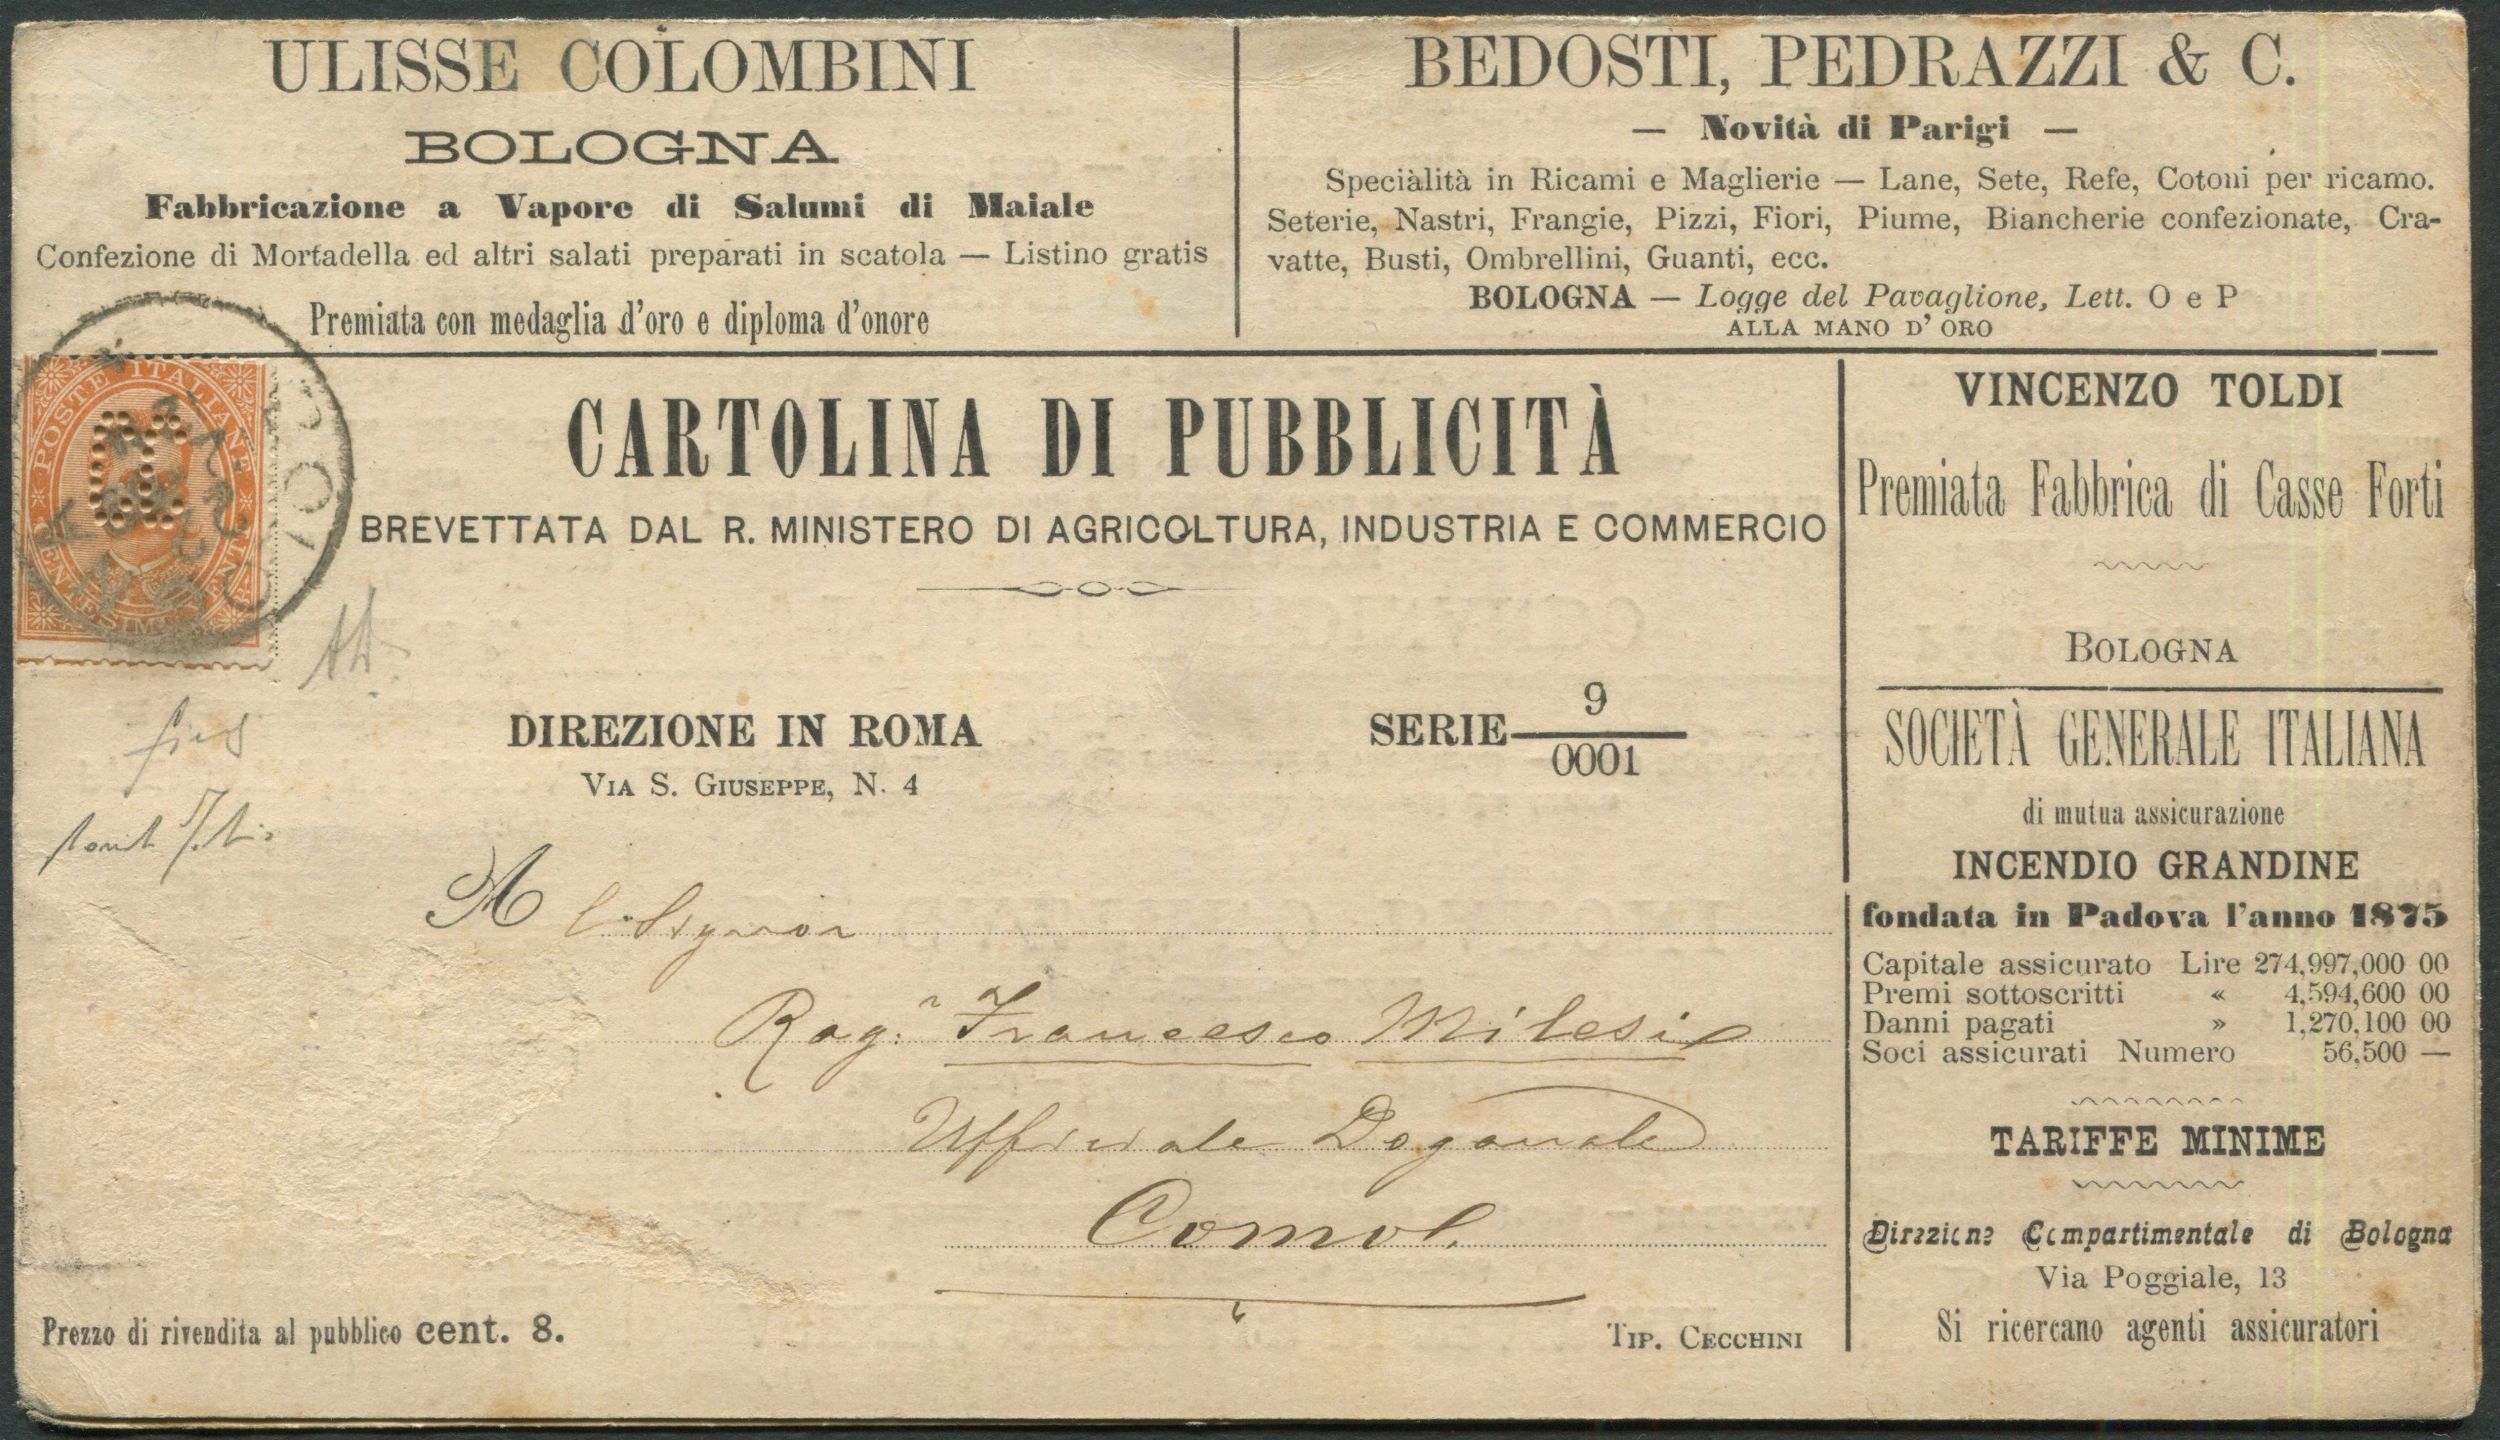 ULISSE COLOMBINI
BOLOGNA
Fabbricazione a Vapore di Salumi di Maiale
Confezione di Mortadella ed altri salati preparati in scatola — Listino gratis
Premiata con medaglia d'oro e diploma d'onore
BEDOSTI, PEDRAZZI & C.
— Novità di Parigi —
Speciàlità in Ricami e Maglierie — Lane, Sete, Refe, Cotoni per ricamo.
Seterie, Nastri, Frangie, Pizzi, Fiori, Piume, Biancherie confezionate, Cra-
vatte, Busti, Ombrellini, Guanti, ecc.
BOLOGNA — Logge del Pavaglione, Lett. O e P
ALLA MANO D' ORO
POSTE ITALIANE
CARTOLINA DI PUBBLICITÀ
BREVETTATA DAL R. MINISTERO DI AGRICOLTURA, INDUSTRIA E COMMERCIO
DIREZIONE IN ROMA
VIA S. GIUSEPPE, N. 4
SERIE 9
0001
A l Signor
Rag.r Francesco Milesi
Ufficiale Doganale
Como
Prezzo di rivendita al pubblico cent. 8.
TIP. CECCHINI
VINCENZO TOLDI
Premiata Fabbrica di Casse Forti
BOLOGNA
SOCIETÀ GENERALE ITALIANA
di mutua assicurazione
INCENDIO GRANDINE
fondata in Padova l'anno 1875
Capitale assicurato Lire 274,997,000 00
Premi sottoscritti « 4,594,600 00
Danni pagati » 1,270,100 00
Soci assicurati Numero 56,500 —
TARIFFE MINIME
Direzione Compartimentale di Bologna
Via Poggiale, 13
Si ricercano agenti assicuratori